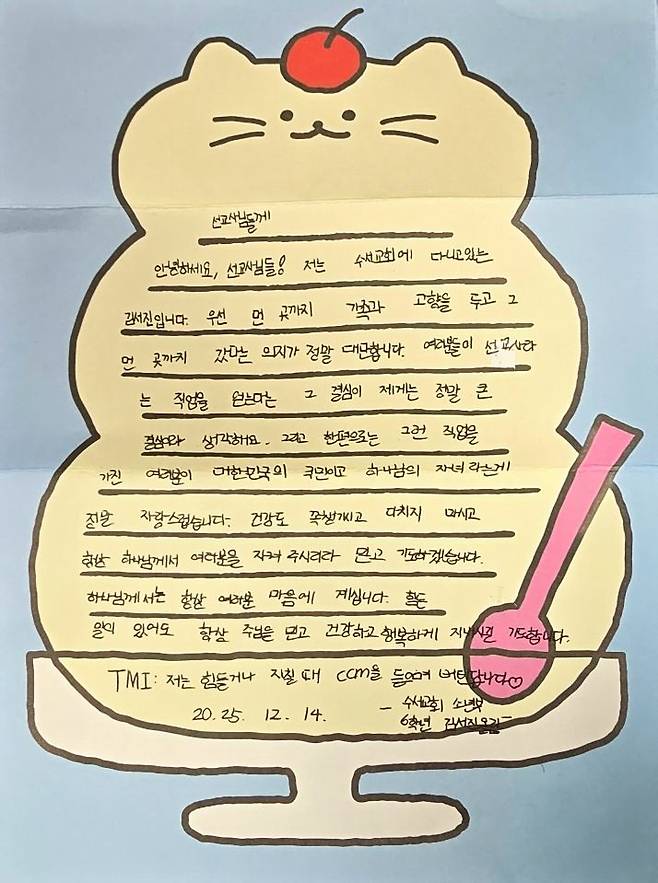 선교사님들께
안녕하세요, 선교사님들! 저는 수성교회에 다니고있는
김서진입니다. 우선 먼 곳까지 가족과 고향을 두고 그
먼 곳까지 갔다는 의지가 정말 대단합니다. 여러분들이 선교사라
는 직업을 원한다는 그 결심이 제게는 정말 큰
결심이라 생각해요. 그리고 한편으로는 그런 직업을
가진 여러분이 대한민국의 국민이고 하나님의 자녀라는게
정말 자랑스럽습니다. 건강도 꼭챙기시고 다치지 마시고
항상 하나님께서 여러분을 지켜 주시리라 믿고 기도하겠습니다.
하나님께서는 항상 여러분 마음에 계십니다. 힘든
일이 있어도 항상 주님을 믿고 건강하고 행복하게 지내시길 기도합니다.
TMI: 저는 힘들거나 지칠 때 ccm을 들으며 버틴답니다♡
20.25. 12. 14. - 수성교회 소년부
6학년 김서진올림-